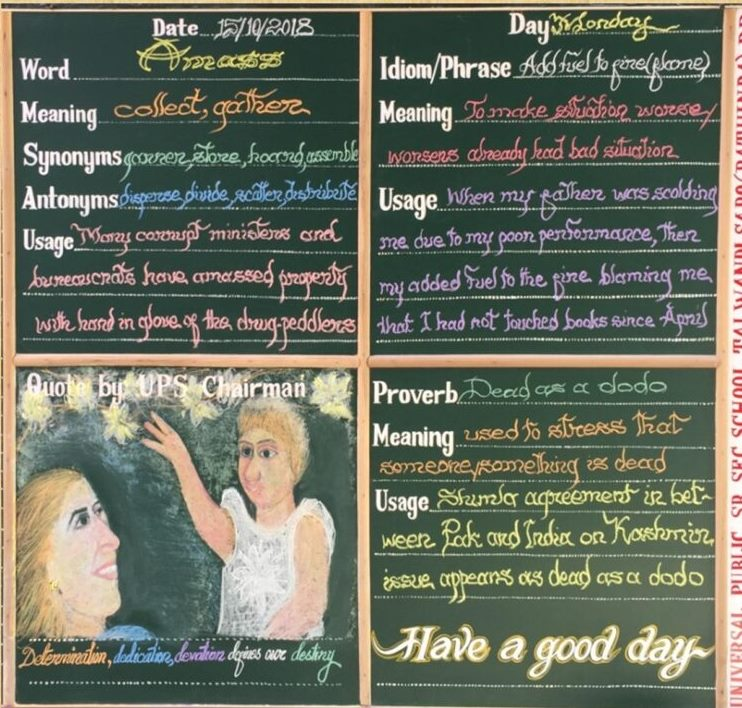 Date 15/10/2018
Word Amass
Meaning collect, gather
Synonyms garner, store, hoard, assemble
Antonyms disperse, divide, scatter, distribute
Usage Many corrupt ministers and
bureaucrats have amassed property
with hand in glove of the drug-peddlers
Day Monday
Idiom/Phrase Add fuel to fire (flame)
Meaning To make situation worse/
worsens already had bad situation
Usage When my father was scolding
me due to my poor performance, then
my added fuel to the fire blaming me
that I had not touched books since April
Quote by UPS Chairman
Determination, dedication, devotion defines our destiny
Proverb Dead as a dodo
Meaning used to stress that
someone/something is dead
Usage Shimla agreement in bet-
ween Pak and India on Kashmir
issue appears as dead as a dodo
Have a good day
UNIVERSAL PUBLIC SR. SEC. SCHOOL, TALWANDI SABO (BATHINDA)